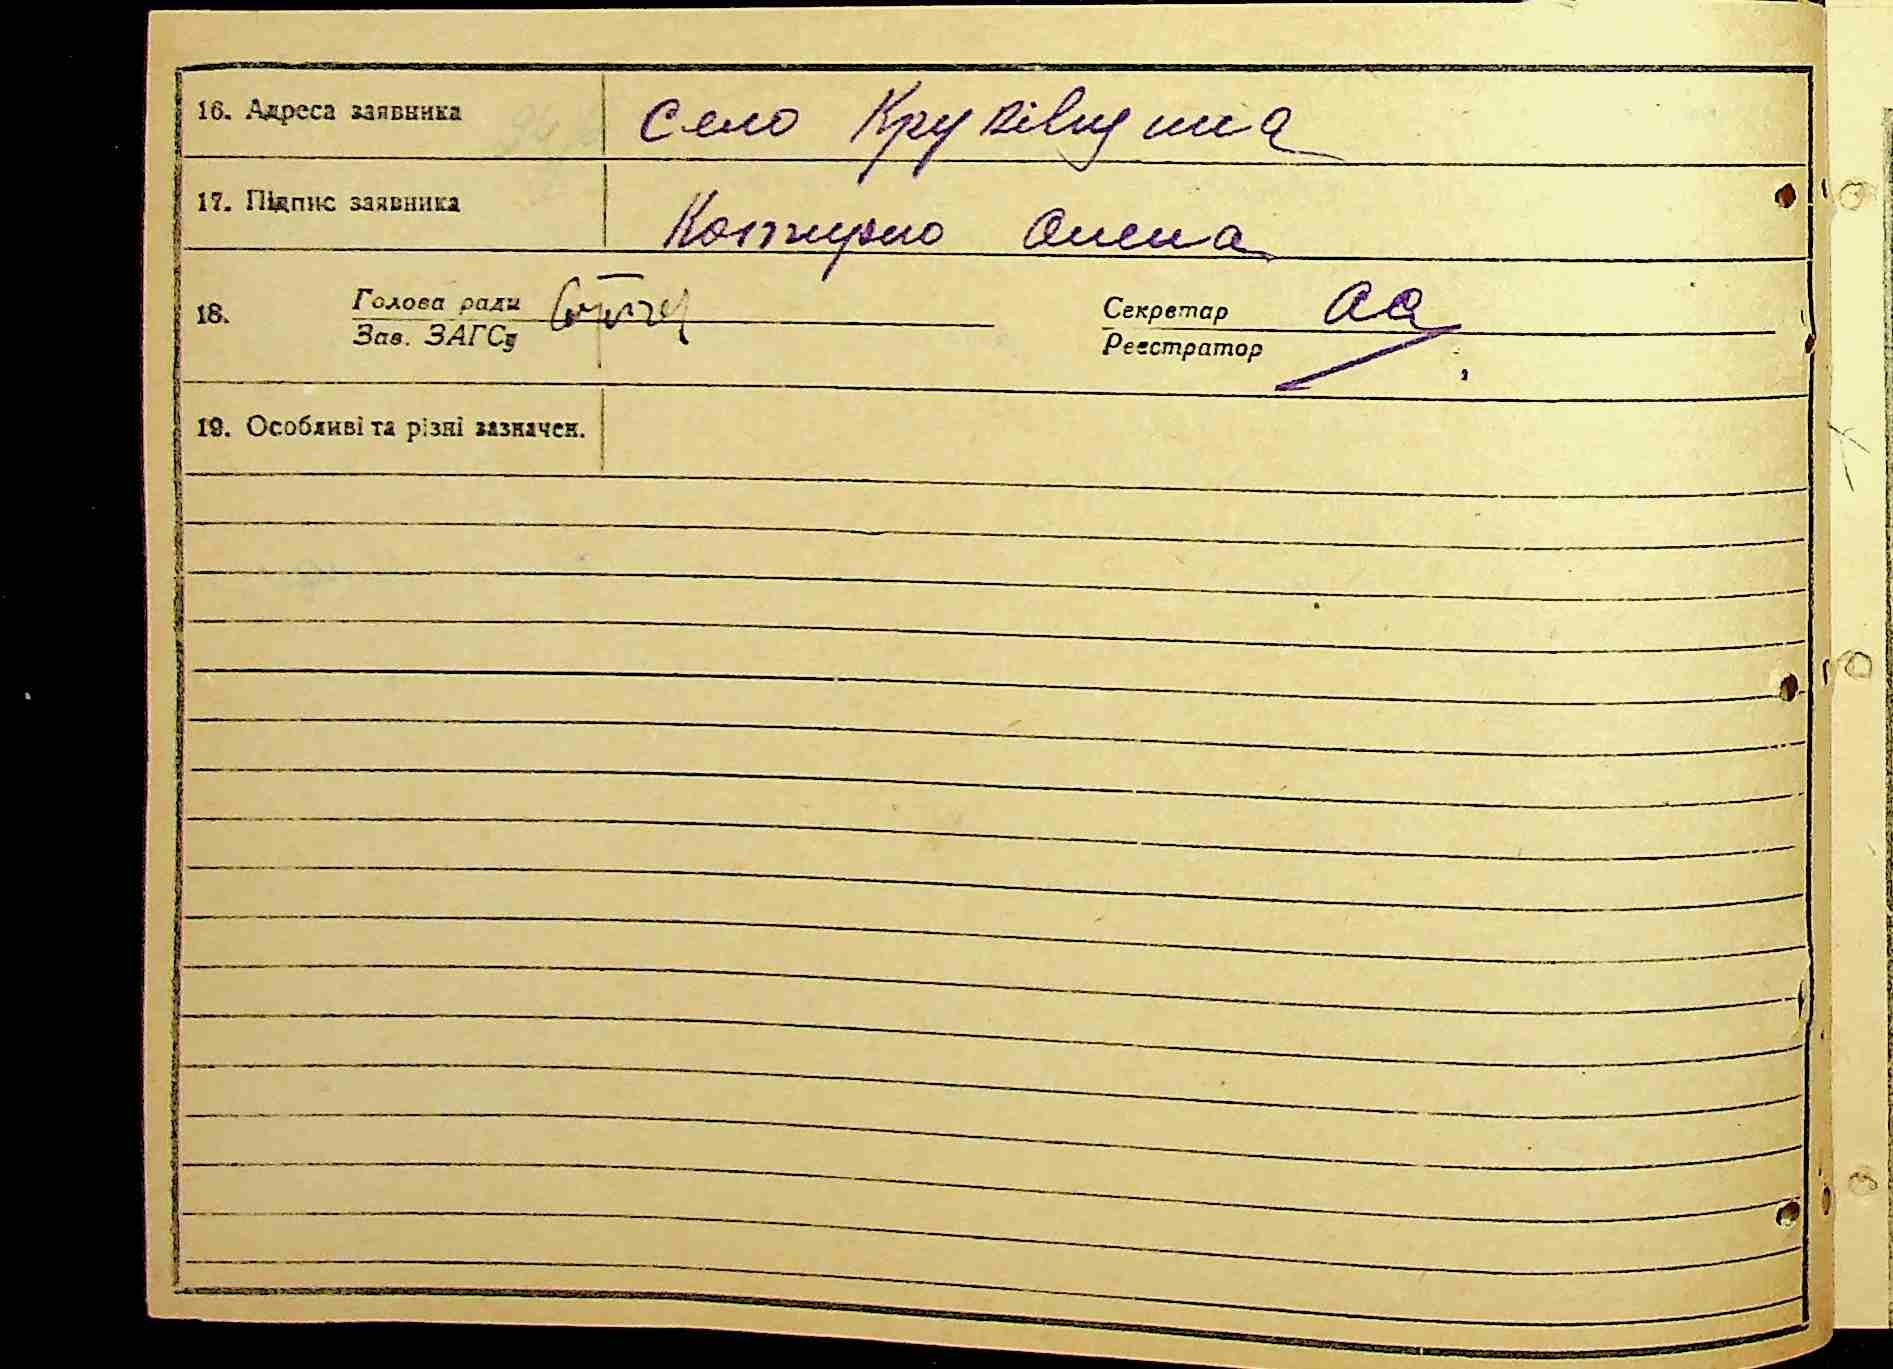 16. Адреса заявника село Круківщина
17. Підпис заявника Олена
18. Голова ради Секретар
Зав. ЗАГСу Реєстратор
19. Особливі та різні зазначен.